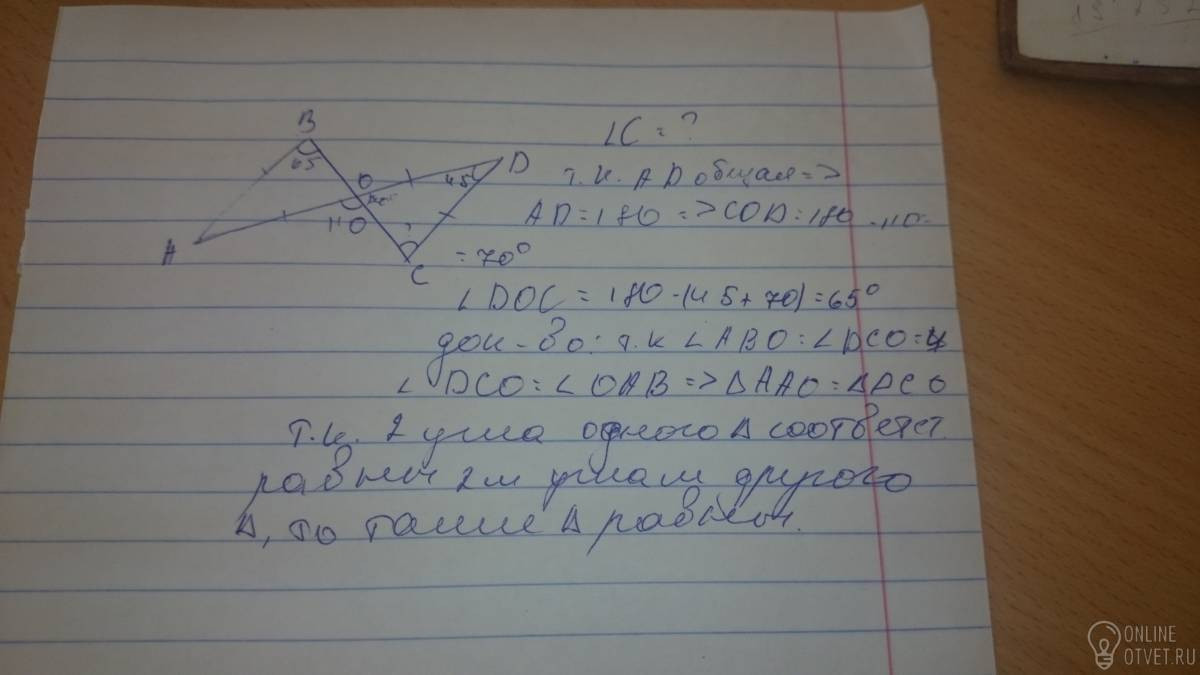 B
65
O
110
A
C
D
45
∠C = ?
т.к. AD общая =>
AD = 180 => COD = 180 - 110
= 70°
∠DOC = 180 - (45 + 70) = 65°
док-во: т.к ∠ABO = ∠DCO =
∠DCO = ∠OAB => ΔAAO = ΔDCO
т.к. 2 угла одного Δ соответст.
равны 2м углам другого
Δ, то такие Δ равны.
ONLINE
OTVET.RU